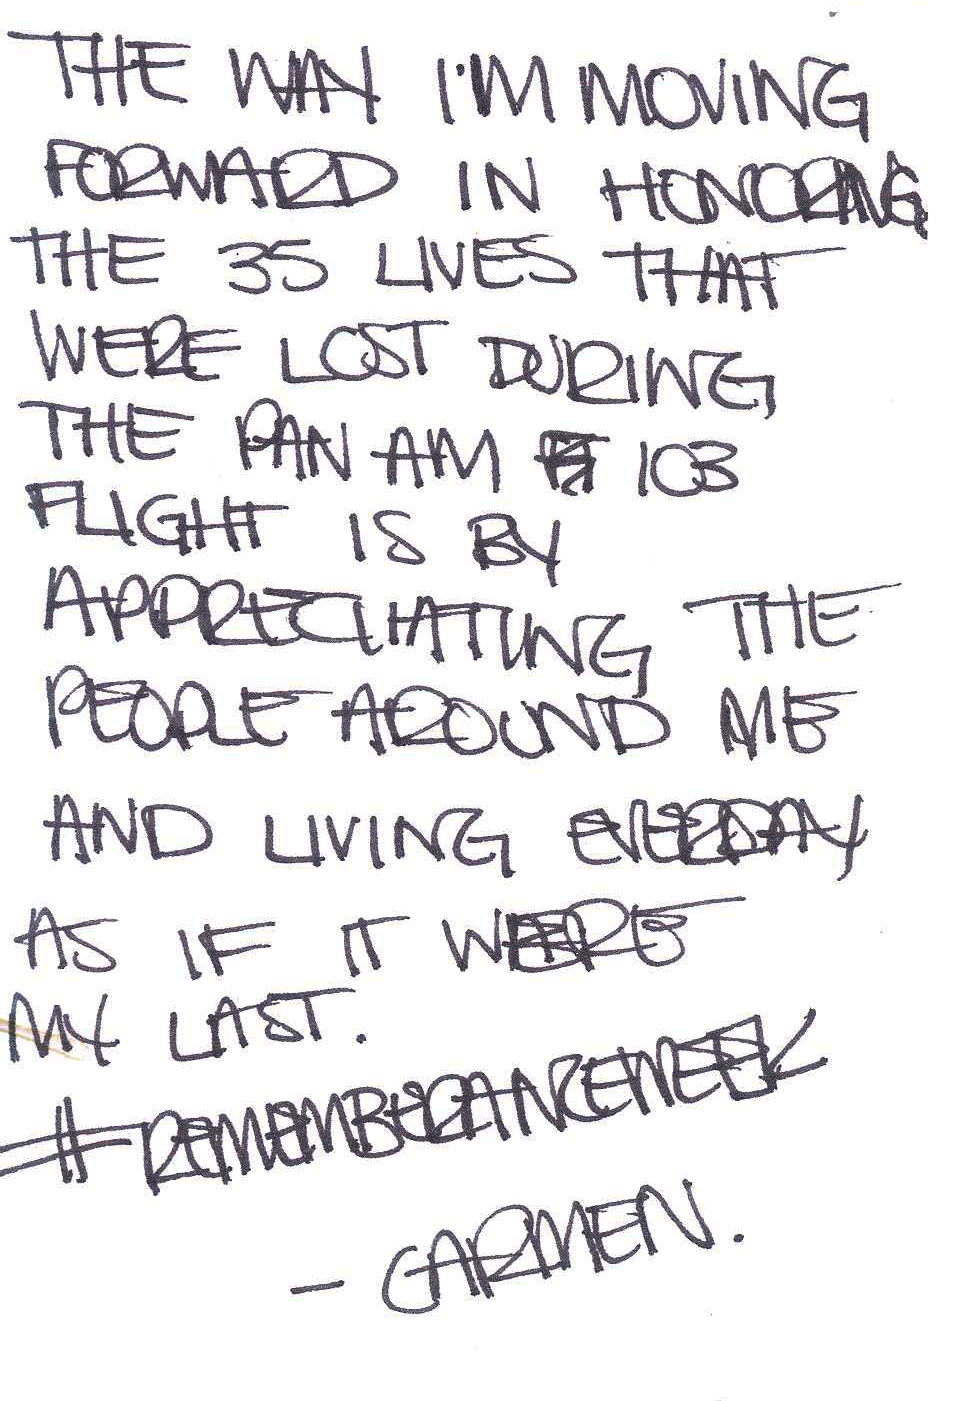 THE WAY I'M MOVING
FORWARD IN HONORING
THE 35 LIVES THAT
WERE LOST DURING
THE PAN AM 103
FLIGHT IS BY
APPRECIATING THE
PEOPLE AROUND ME
AND LIVING EVERYDAY
AS IF IT WERE
MY LAST.
#REMEMBERANCEWEEK
- CARMEN.